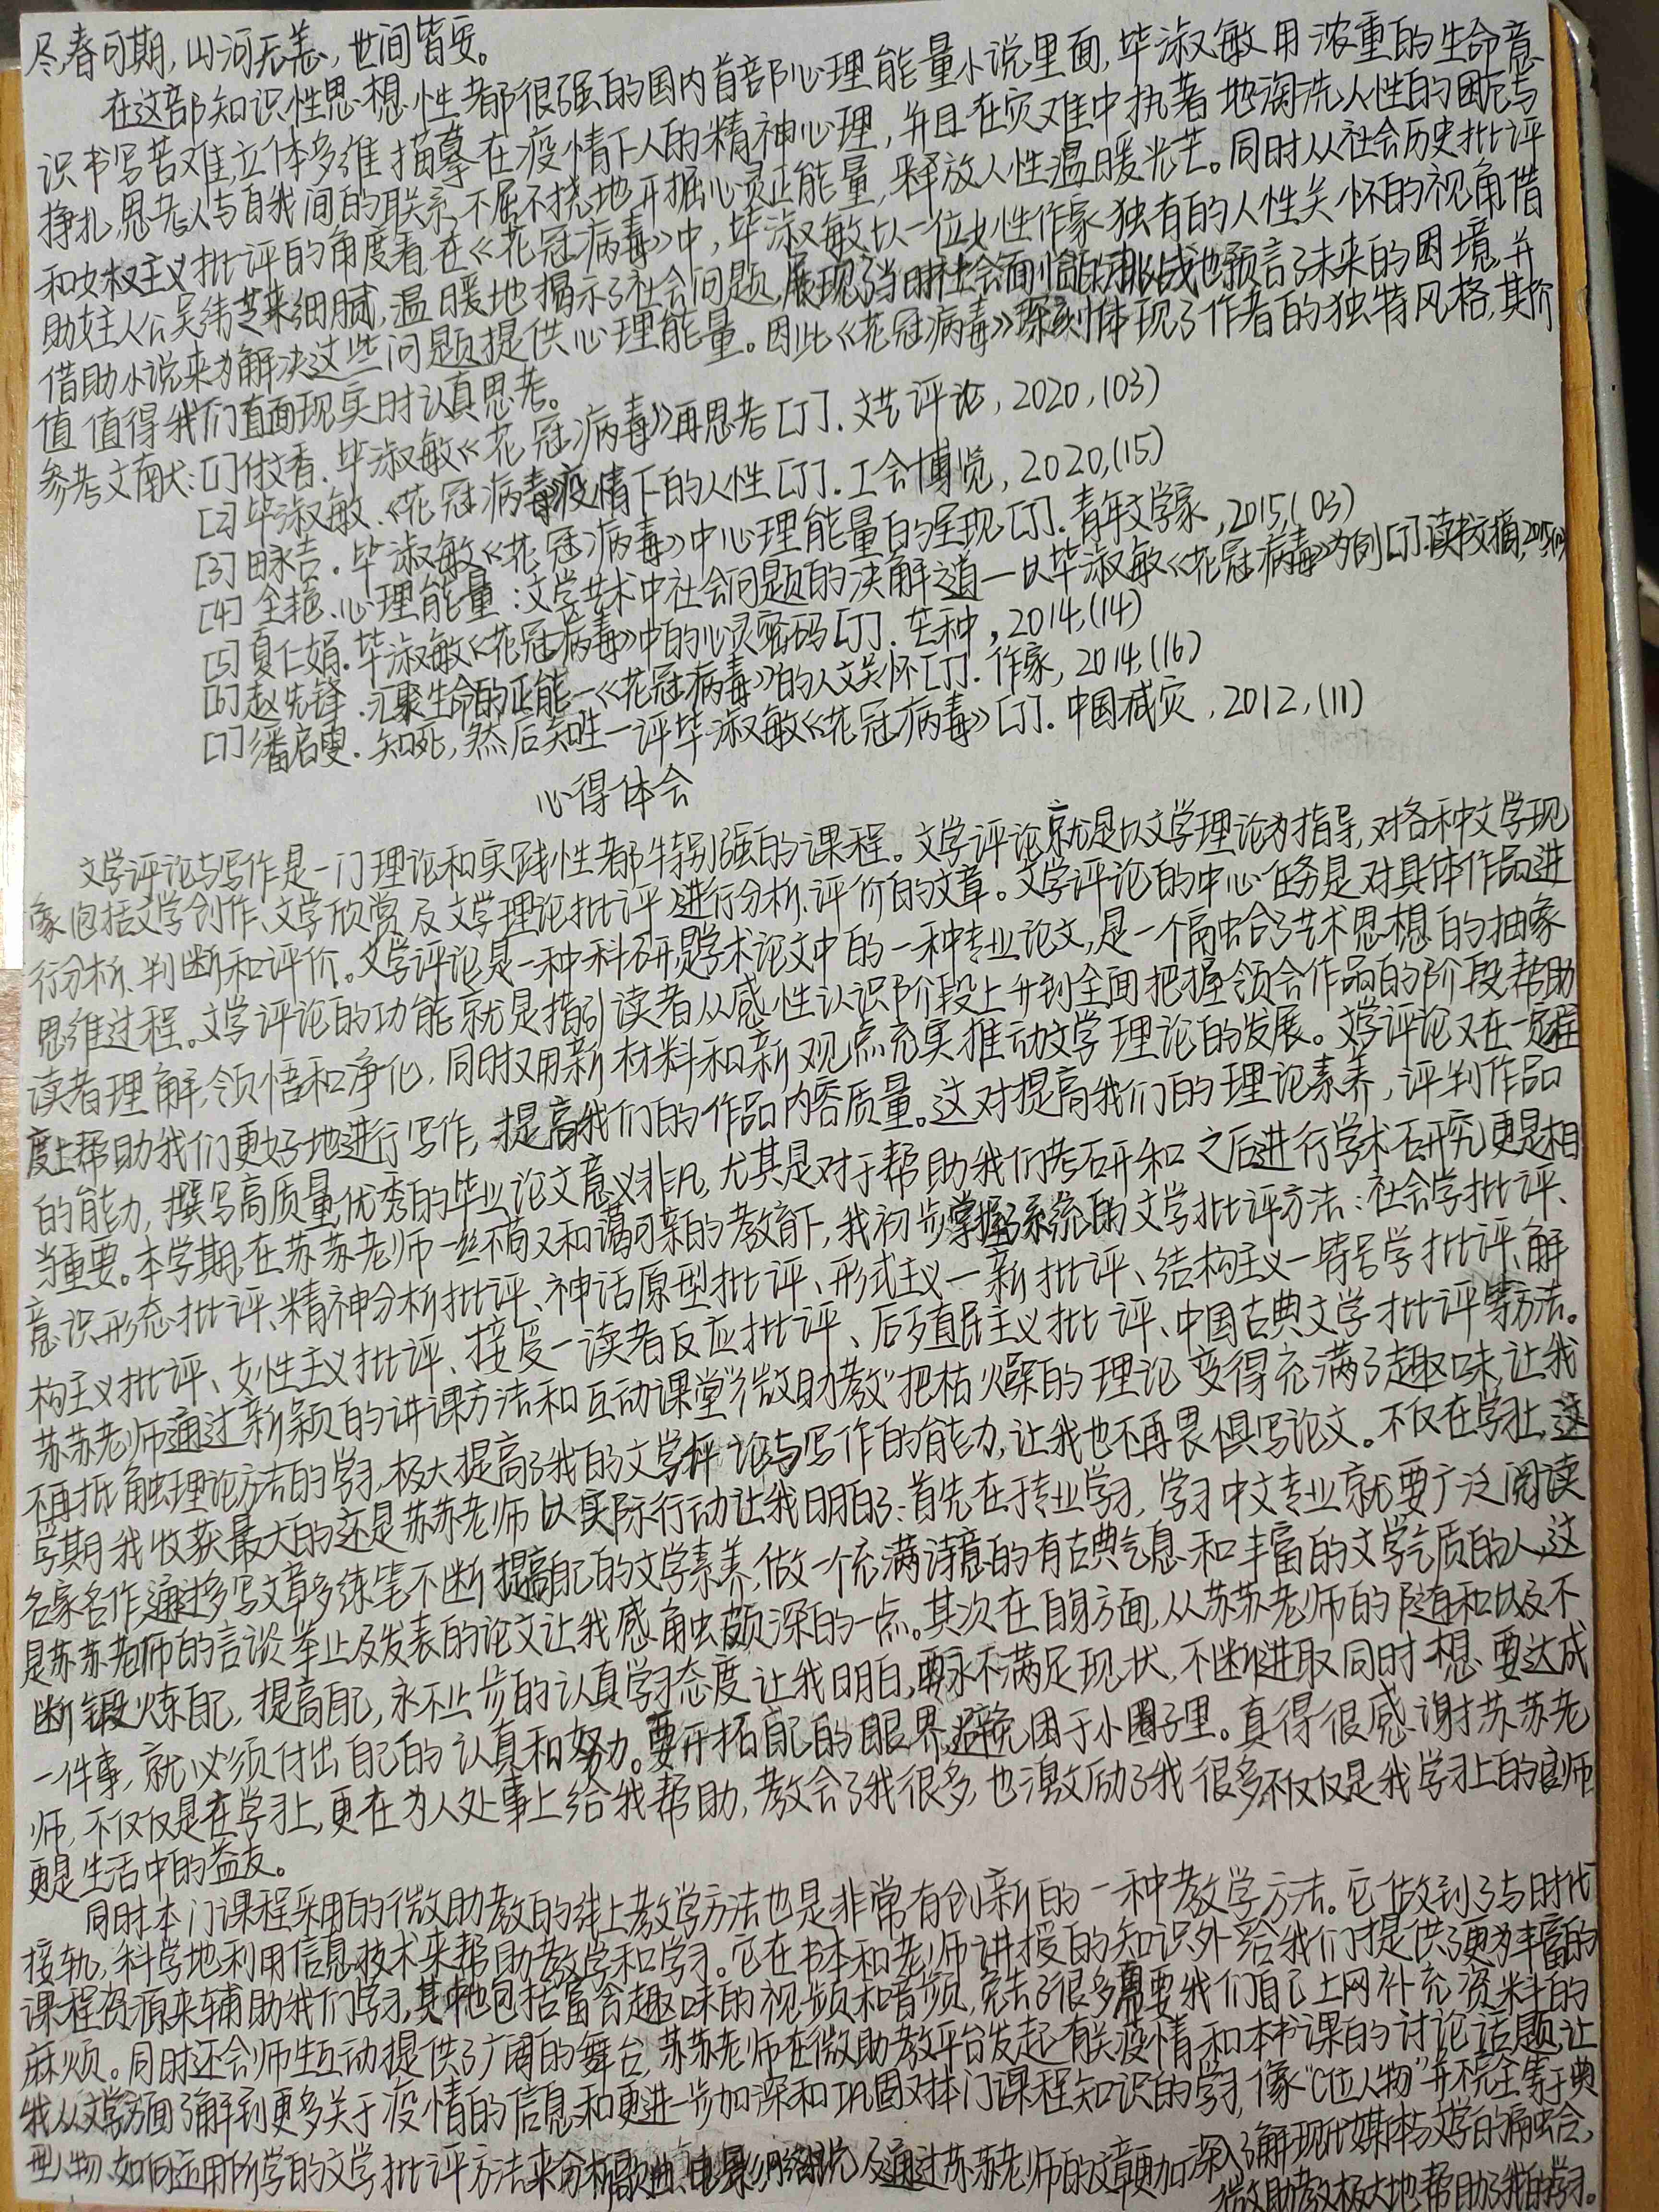 尽,春可期,山河无恙,世间皆安。
在这部知识性思想性都很强的国内首部心理能量小说里面,毕淑敏用浓重的生命意
识书写苦难,立体多维描摹在疫情下人的精神心理,并且在灾难中执著地淘洗人性的困厄与
挣扎,思考人与自我间的联系,不屈不挠地开掘心灵正能量,释放人性温暖光芒。同时从社会历史批评
和女权主义批评的角度看,在《花冠病毒》中,毕淑敏以一位女性作家独有的人性关怀的视角借
助女主人公吴纬芝来细腻,温暖地揭示了社会问题,展现了当时社会面临的挑战也预言了未来的困境,并
借助小说来为解决这些问题提供心理能量。因此《花冠病毒》深刻体现了作者的独特风格,其价
值值得我们直面现实时认真思考。
参考文献:[1]付文香.毕淑敏《花冠病毒》再思考[J].文艺评论,2020,(03)
[2]毕淑敏.《花冠病毒》疫情下的人性[J].工会博览,2020,(15)
[3]田永吉.毕淑敏《花冠病毒》中心理能量的呈现[J].青年文学家,2015,(03)
[4]全艳.心理能量:文学艺术中社会问题的决解之道—以毕淑敏《花冠病毒》为例[J].读书文摘,2015
[5]夏仁娟.毕淑敏《花冠病毒》中的心灵密码[J].芒种,2014,(14)
[6]赵先锋.汇聚生命的正能—《花冠病毒》的人文关怀[J].作家,2014,(16)
[7]潘启雯.知死,然后知生—评毕淑敏《花冠病毒》[J].中国减灾,2012,(11)
心得体会
文学评论与写作是一门理论和实践性都特别强的课程。文学评论就是以文学理论为指导,对各种文学现
象(包括文学创作、文学欣赏及文学理论批评)进行分析、评价的文章。文学评论的中心任务是对具体作品进
行分析、判断和评价。文学评论是一种科研是学术论文中的一种专业论文,是一个融合了艺术思想的抽象
思维过程。文学评论的功能就是指引读者从感性认识阶段上升到全面把握领会作品的阶段,帮助
读者理解,领悟和净化,同时又用新材料和新观点充实推动文学理论的发展。文学评论又在一定程
度上帮助我们更好地进行写作,提高我们的作品内容质量。这对提高我们的理论素养,评判作品
的能力,撰写高质量优秀的毕业论文意义非凡,尤其是对于帮助我们考研和之后进行学术研究更是相
当重要。本学期,在苏苏老师一丝不苟又和蔼可亲的教育下,我初步掌握了系统的文学批评方法:社会学批评、
意识形态批评、精神分析批评、神话原型批评、形式主义—新批评、结构主义—符号学批评、解
构主义批评、女性主义批评、接受—读者反应批评、后殖民主义批评、中国古典文学批评等方法。
苏苏老师通过新颖的讲课方法和互动课堂"微助教"把枯燥的理论变得充满了趣味,让我
不再抵触理论方法的学习,极大提高了我的文学评论与写作的能力,让我也不再畏惧写论文。不仅在学习上,这
学期我收获最大的还是苏苏老师以实际行动让我明白了:首先在于专业学习,学习中文专业就要广泛阅读
名家名作,通过多写文章多练笔不断提高自己的文学素养,做一个充满诗意的有古典气息和丰富的文学气质的人,这
是苏苏老师的言谈举止及发表的论文让我感触颇深的一点。其次在自身方面,从苏苏老师的随和以及不
断锻炼自己,提高自己,永不止步的认真学习态度让我明白,要永不满足现状,不断进取同时想要达成
一件事,就必须付出自己的认真和努力。要开拓自己的眼界,避免困于小圈子里。真得很感谢苏苏老
师,不仅仅是在学习上,更在为人处事上给我帮助,教会了我很多,也激励了我很多,不仅仅是我学习上的良师
更是生活中的益友。
同时本门课程采用的微助教的线上教学方法也是非常有创新的一种教学方法。它做到了与时代
接轨,科学地利用信息技术来帮助教学和学习。它在书本和老师讲授的知识外给我们提供了更为丰富的
课程资源来辅助我们学习,其中也包括富含趣味的视频和音频,免去了很多需要我们自己上网补充资料的
麻烦。同时还会师生互动提供了广阔的舞台,苏苏老师在微助教平台发起有关疫情和本书课的讨论话题,让
我从文学方面了解到更多关于疫情的信息和更进一步加深和巩固对本门课程知识的学习,像"C位人物"并不完全等于典
型人物、如何运用所学的文学批评方法来分析歌曲、电影、网络小说及通过苏苏老师的文章更加深入了解现代媒体与文学的融合,
微助教极大地帮助了我的学习。